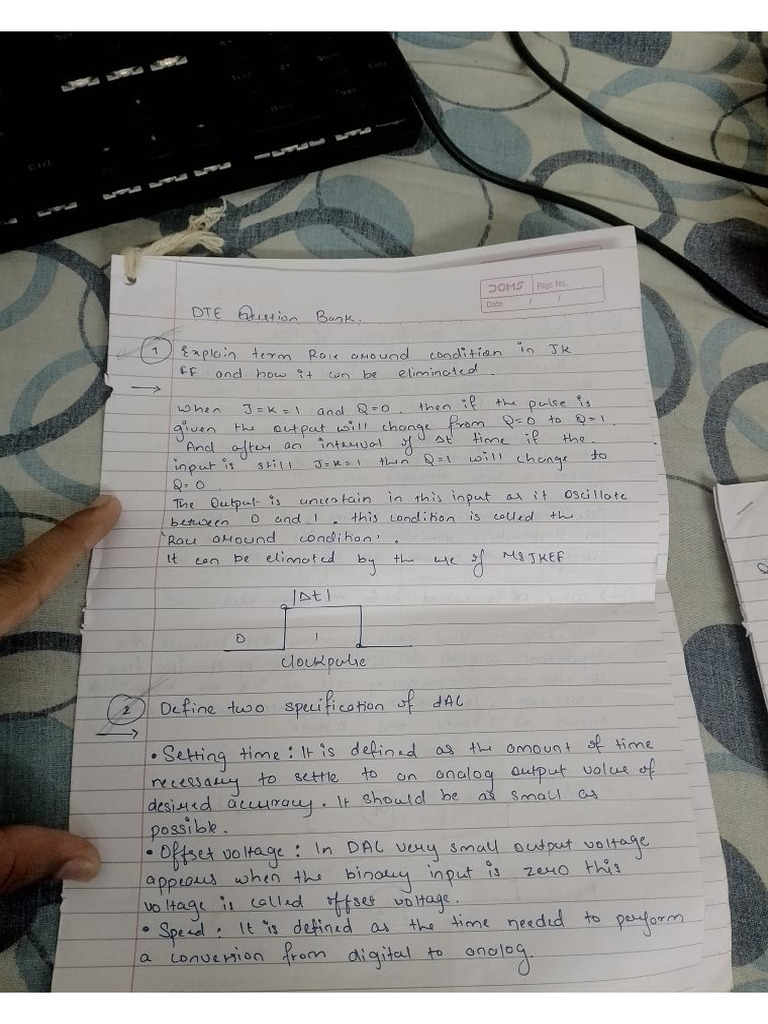 DOMS
Page No.
Date / /
DTE Question Bank.
1 Explain term Race around condition in JK
FF and how it can be eliminated.
→
when J=K=1 and Q=0. then if the pulse is
given the output will change from Q=0 to Q=1.
And after an interval of Δt time if the
input is still J=K=1 then Q=1 will change to
Q=0
The Output is uncertain in this input as it oscillate
between 0 and 1. this condition is called the
'Race around condition'.
It can be elimated by the use of MSJKFF
|Δt|
0 1
clock pulse
2 Define two specification of dAC
→
• Setting time: It is defined as the amount of time
necessary to settle to an analog output value of
desired accuracy. It should be as small as
possible.
• Offset voltage: In DAC very small output voltage
appears when the binary input is zero this
voltage is called offset voltage.
• Speed: It is defined as the time needed to perform
a conversion from digital to analog.